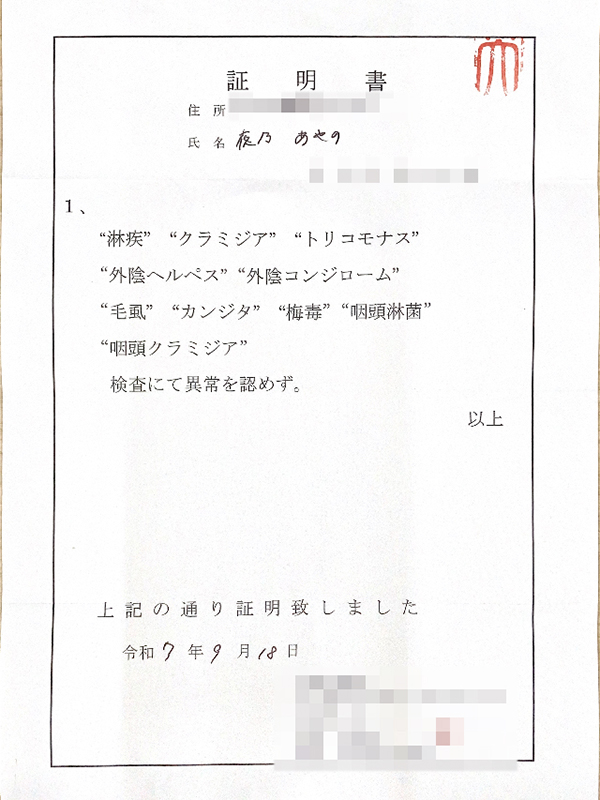 証明書
住所
氏名 夜乃 あやの
1、
“淋疾” “クラミジア” “トリコモナス”
“外陰ヘルペス” “外陰コンジローム”
“毛虱” “カンジタ” “梅毒” “咽頭淋菌”
“咽頭クラミジア”
検査にて異常を認めず。
以上
上記の通り証明致しました
令和 7 年 9 月 18 日